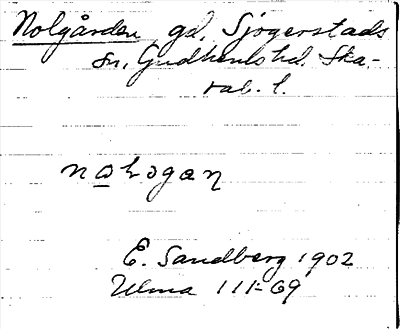 Nolgården gd. Sjogerstads
sn. Gudhems hd. Ska-
rab. l.
nologan
E. Sandberg 1902
Ulma 111:69